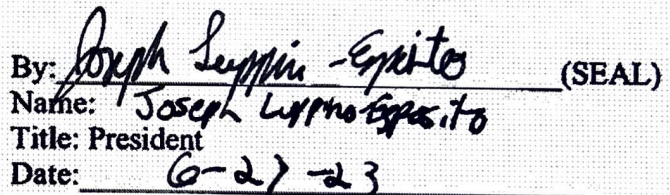 By: Joseph Luppino-Esposito (SEAL)
Name: Joseph Luppino-Esposito
Title: President
Date: 6-27-23